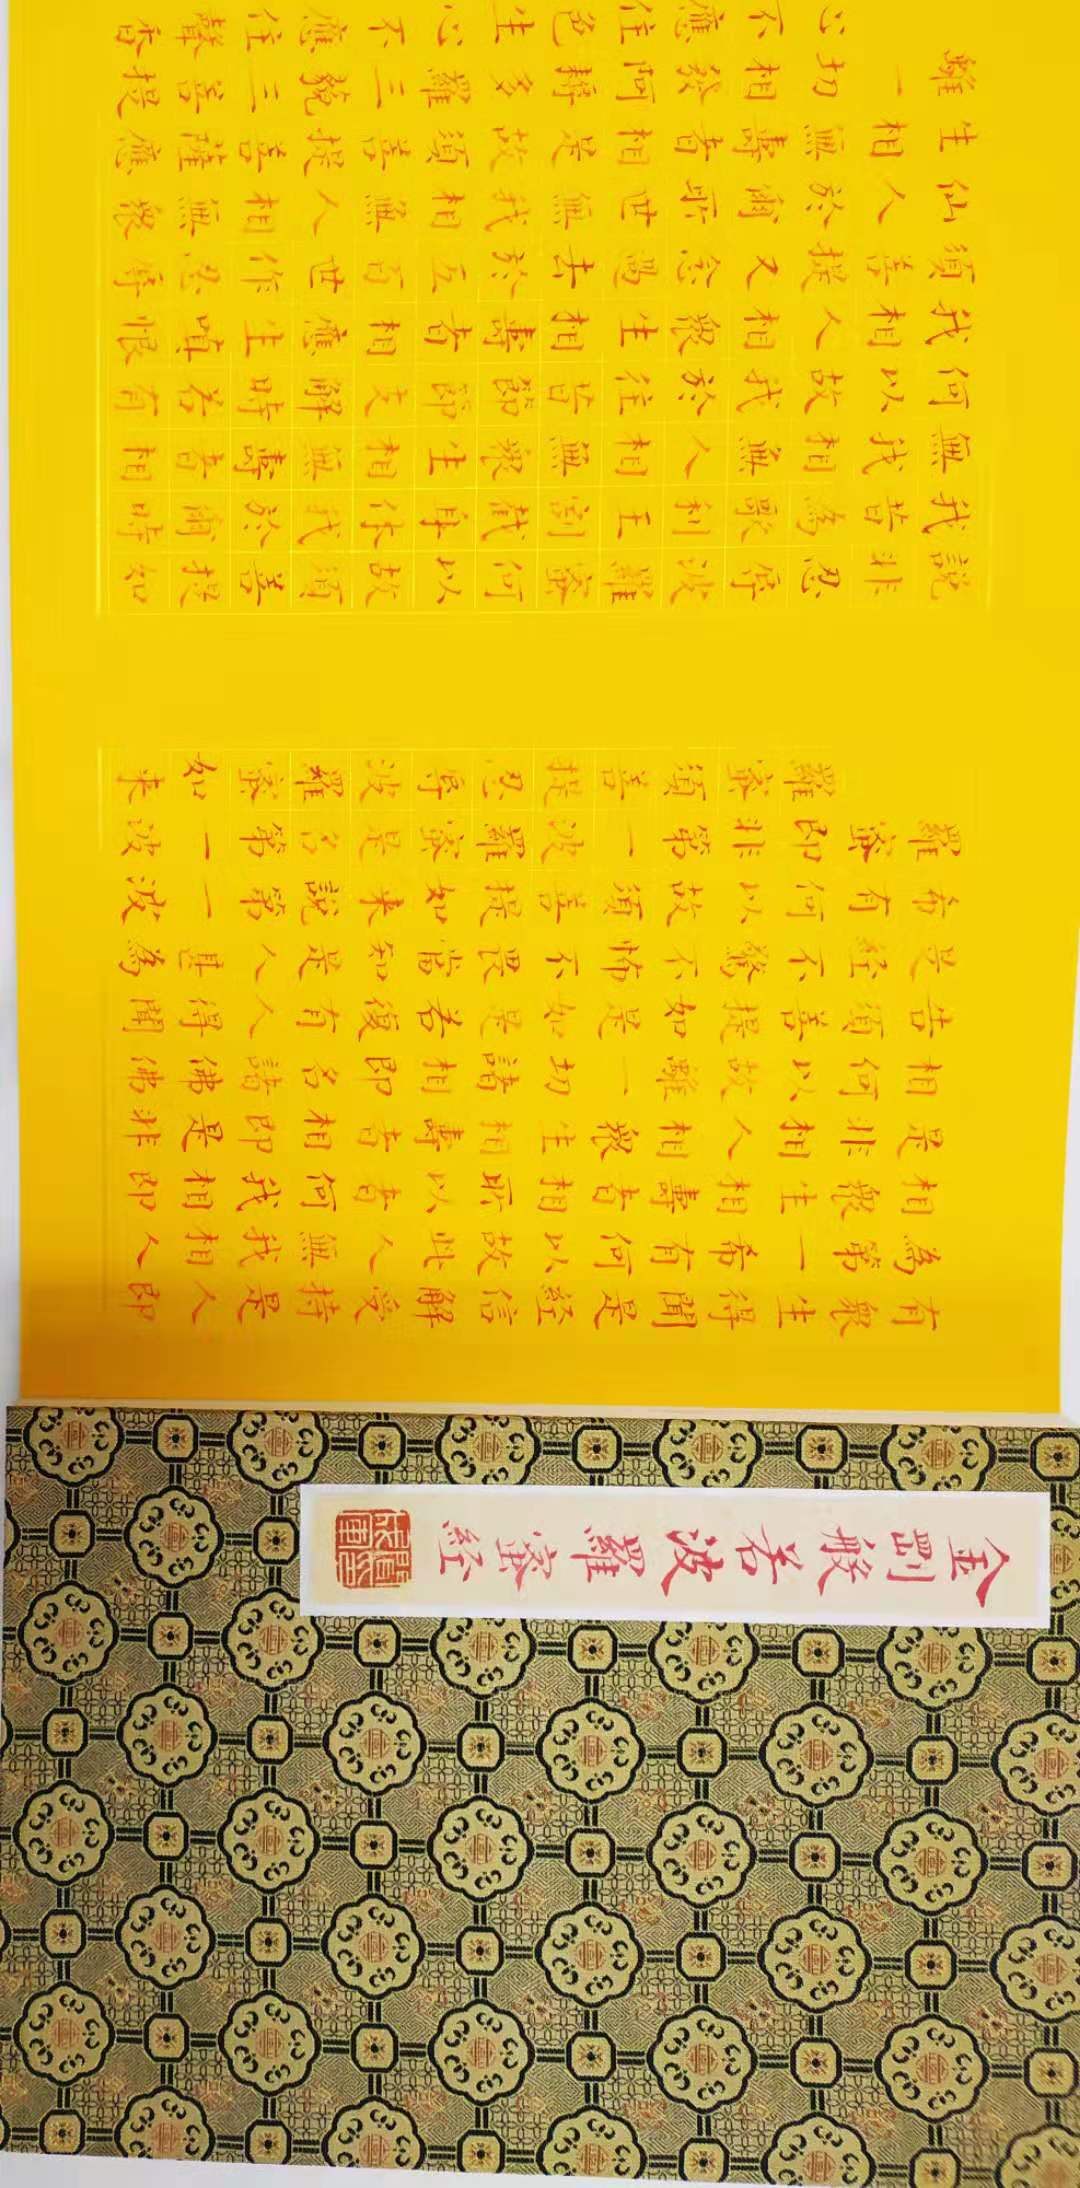 金剛般若波羅蜜経
有眾生得聞是経信解受持是人即
為第一希有何以故此人無我相人
相眾生相壽者相所以者何我相即
是非相人相眾生相壽者相即是非
相何以故離一切諸相即名諸佛佛
告須菩提如是如是若復有人得聞
是経不驚不怖不畏當知是人甚為
希有何以故須菩提如来說第一波
羅蜜即非第一波羅蜜是名第一波
羅蜜須菩提忍辱波羅蜜如来
說非忍辱波羅蜜何以故須菩提如
我昔為歌利王割截身体我於爾時
無我相無人相無眾生相無壽者相
何以故我於往昔節節支解時若有
我相人相眾生相壽者相應生嗔恨
須菩提又念過去於五百世作忍辱
仙人於爾所世無我相無人相無眾
生相無壽者相是故須菩提菩薩應
離一切相發阿耨多羅三藐三菩提
心不應住色生心不應住聲香